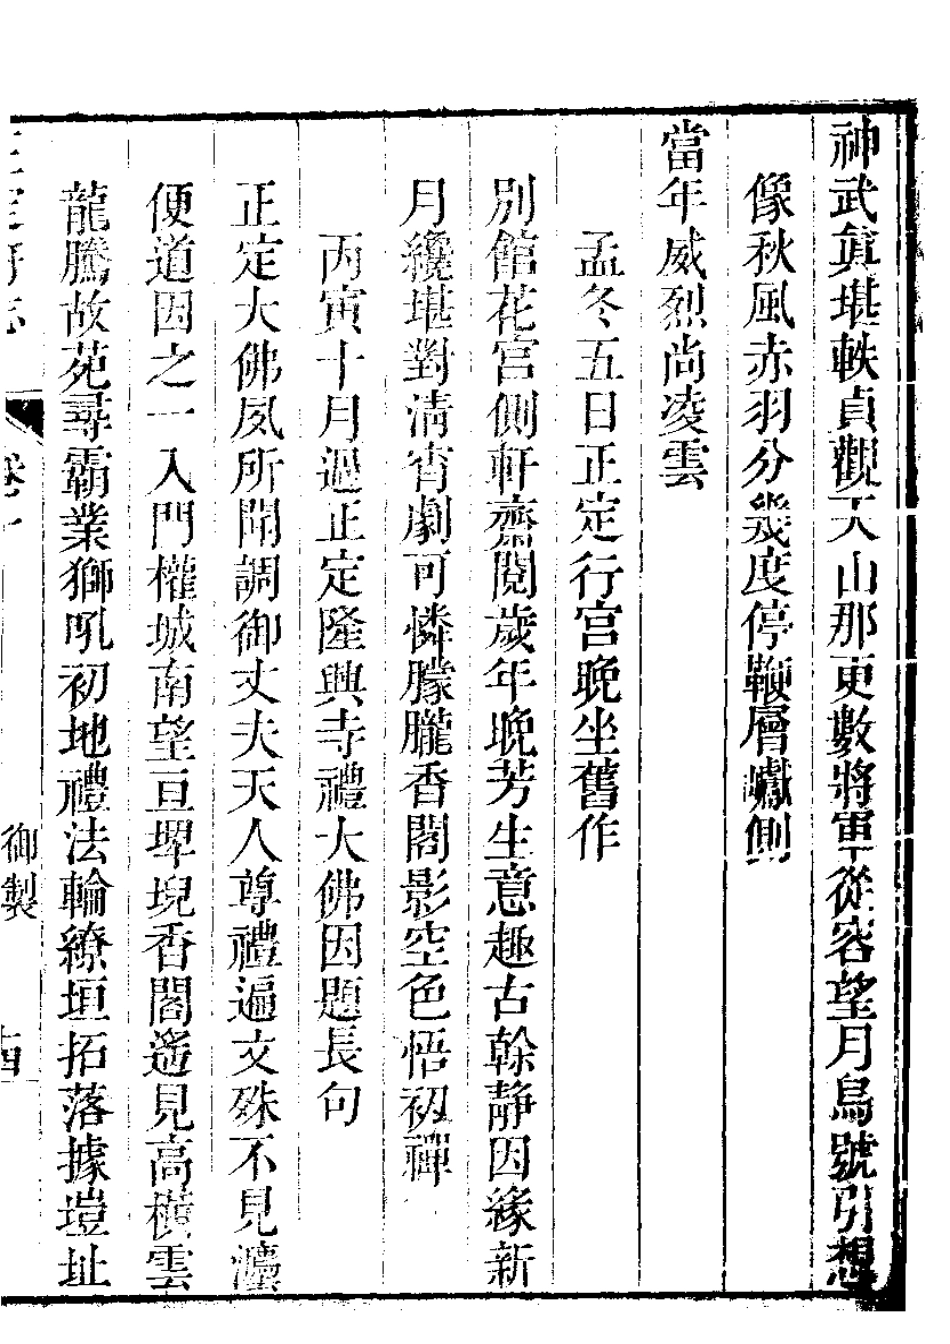 神武眞堪軼貞觀天山那更數將軍從容望月烏號引想
像秋風赤羽分幾度停鞭層巘側
當年威烈尚凌雲
孟冬五日正定行宮晚坐舊作
別館花宮側軒齋閱歲年晚芳生意趣古榦靜因緣新
月纔堪對清宵劇可憐朦朧香閣影空色悟初禪
丙寅十月過正定隆興寺禮大佛因題長句
正定大佛夙所聞調御丈夫天人尊禮遍文殊不見瀘
便道因之一入門權城南望亘埤堄香閣遙見高橫雲
龍騰故苑尋霸業獅吼初地禮法輪繚垣拓落據塏址
正定府志
卷十
御製
十四